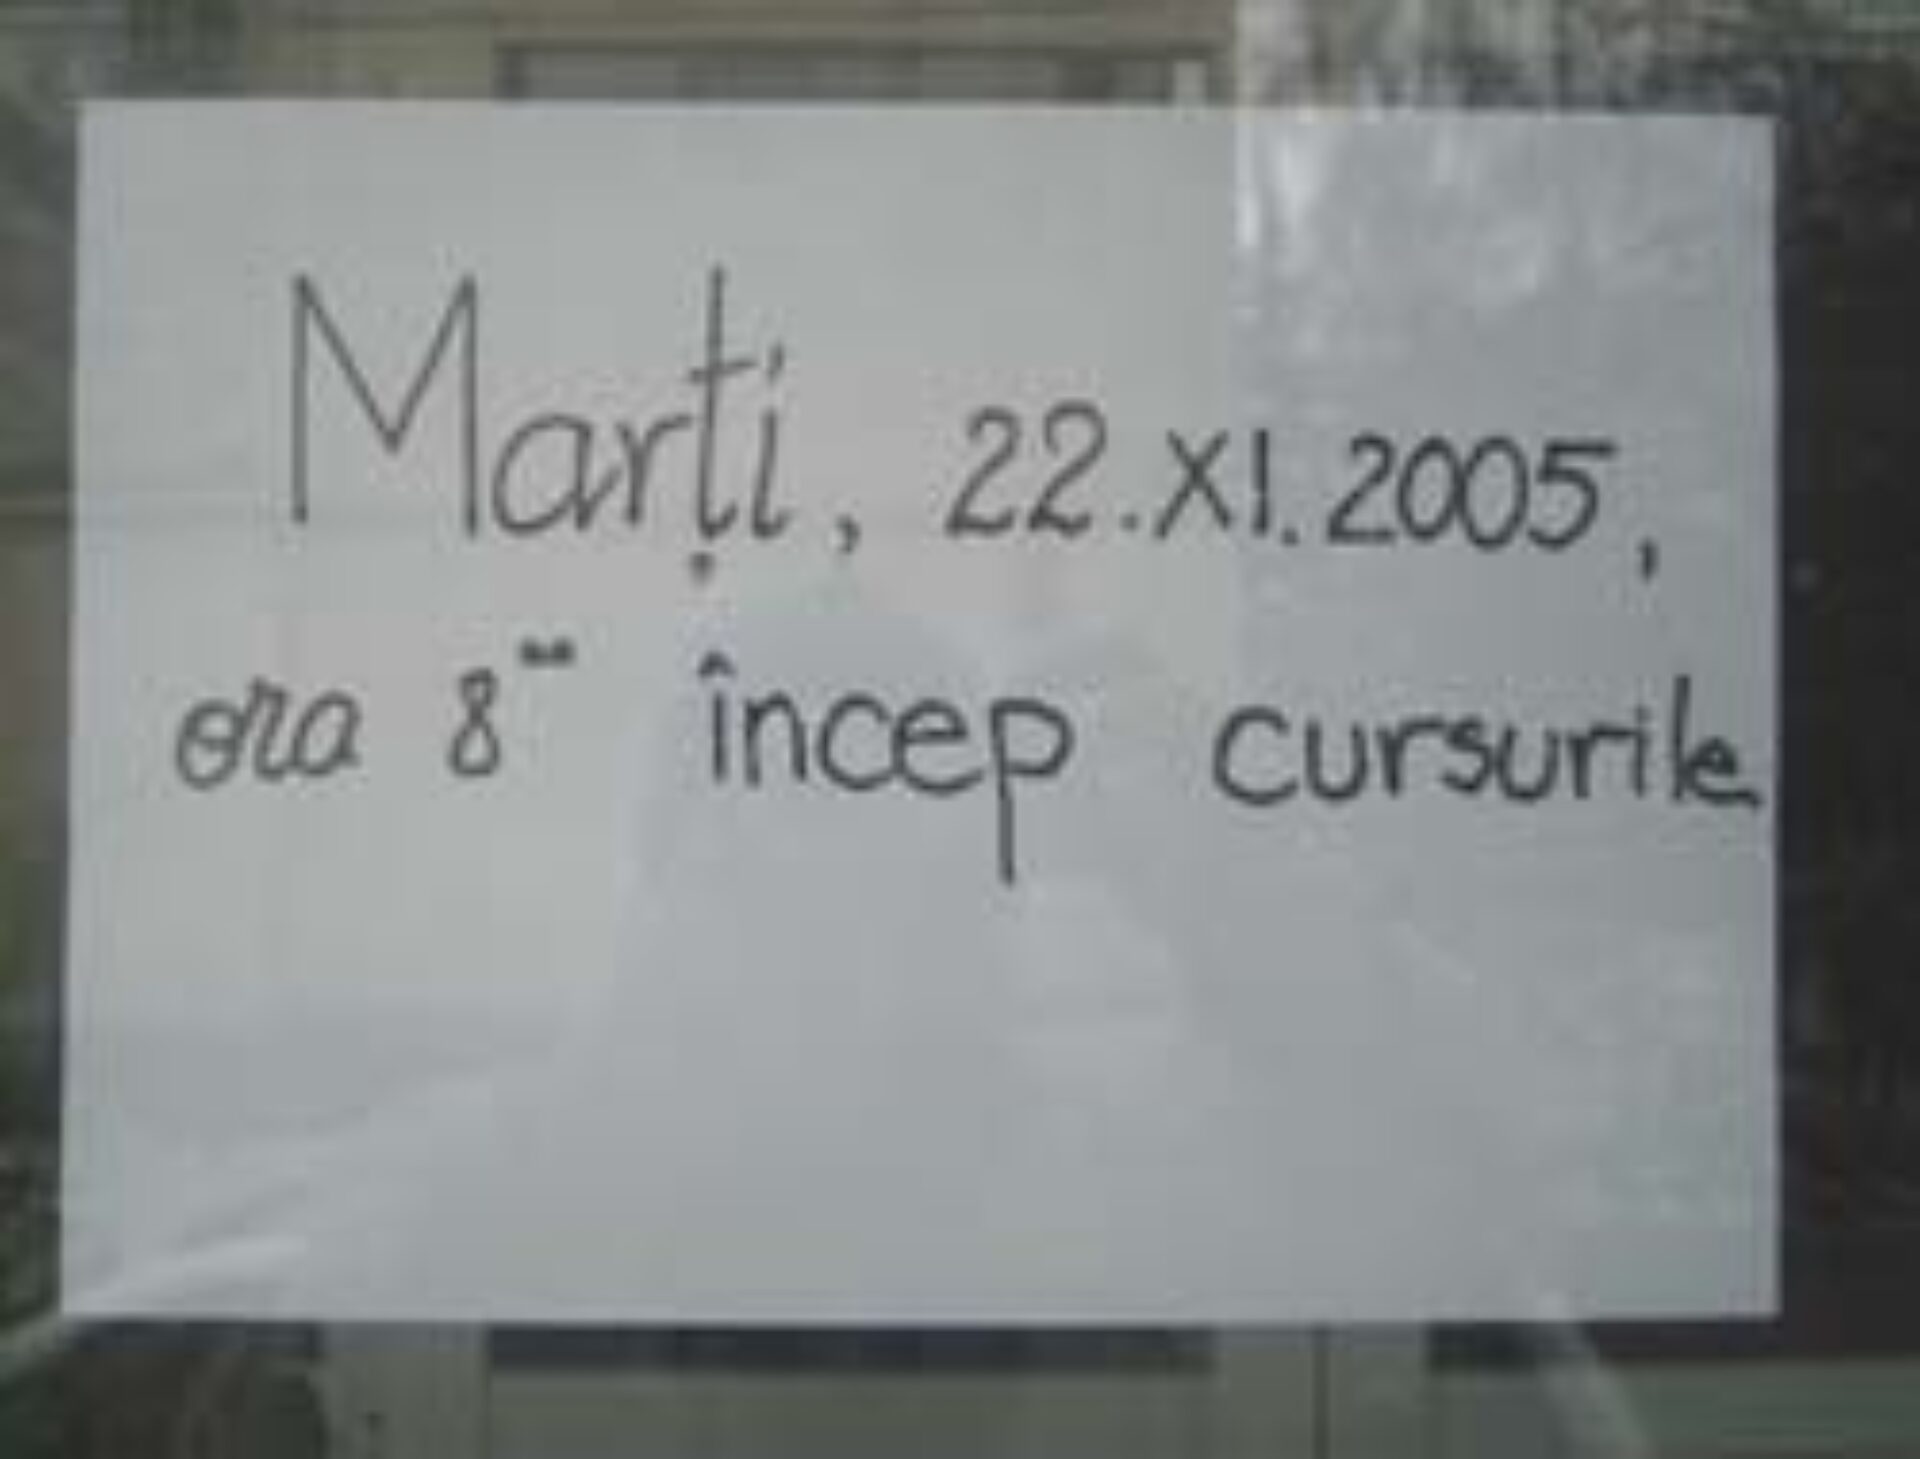 Marți, 22.XI.2005,
ora 8⁰⁰ încep cursurile